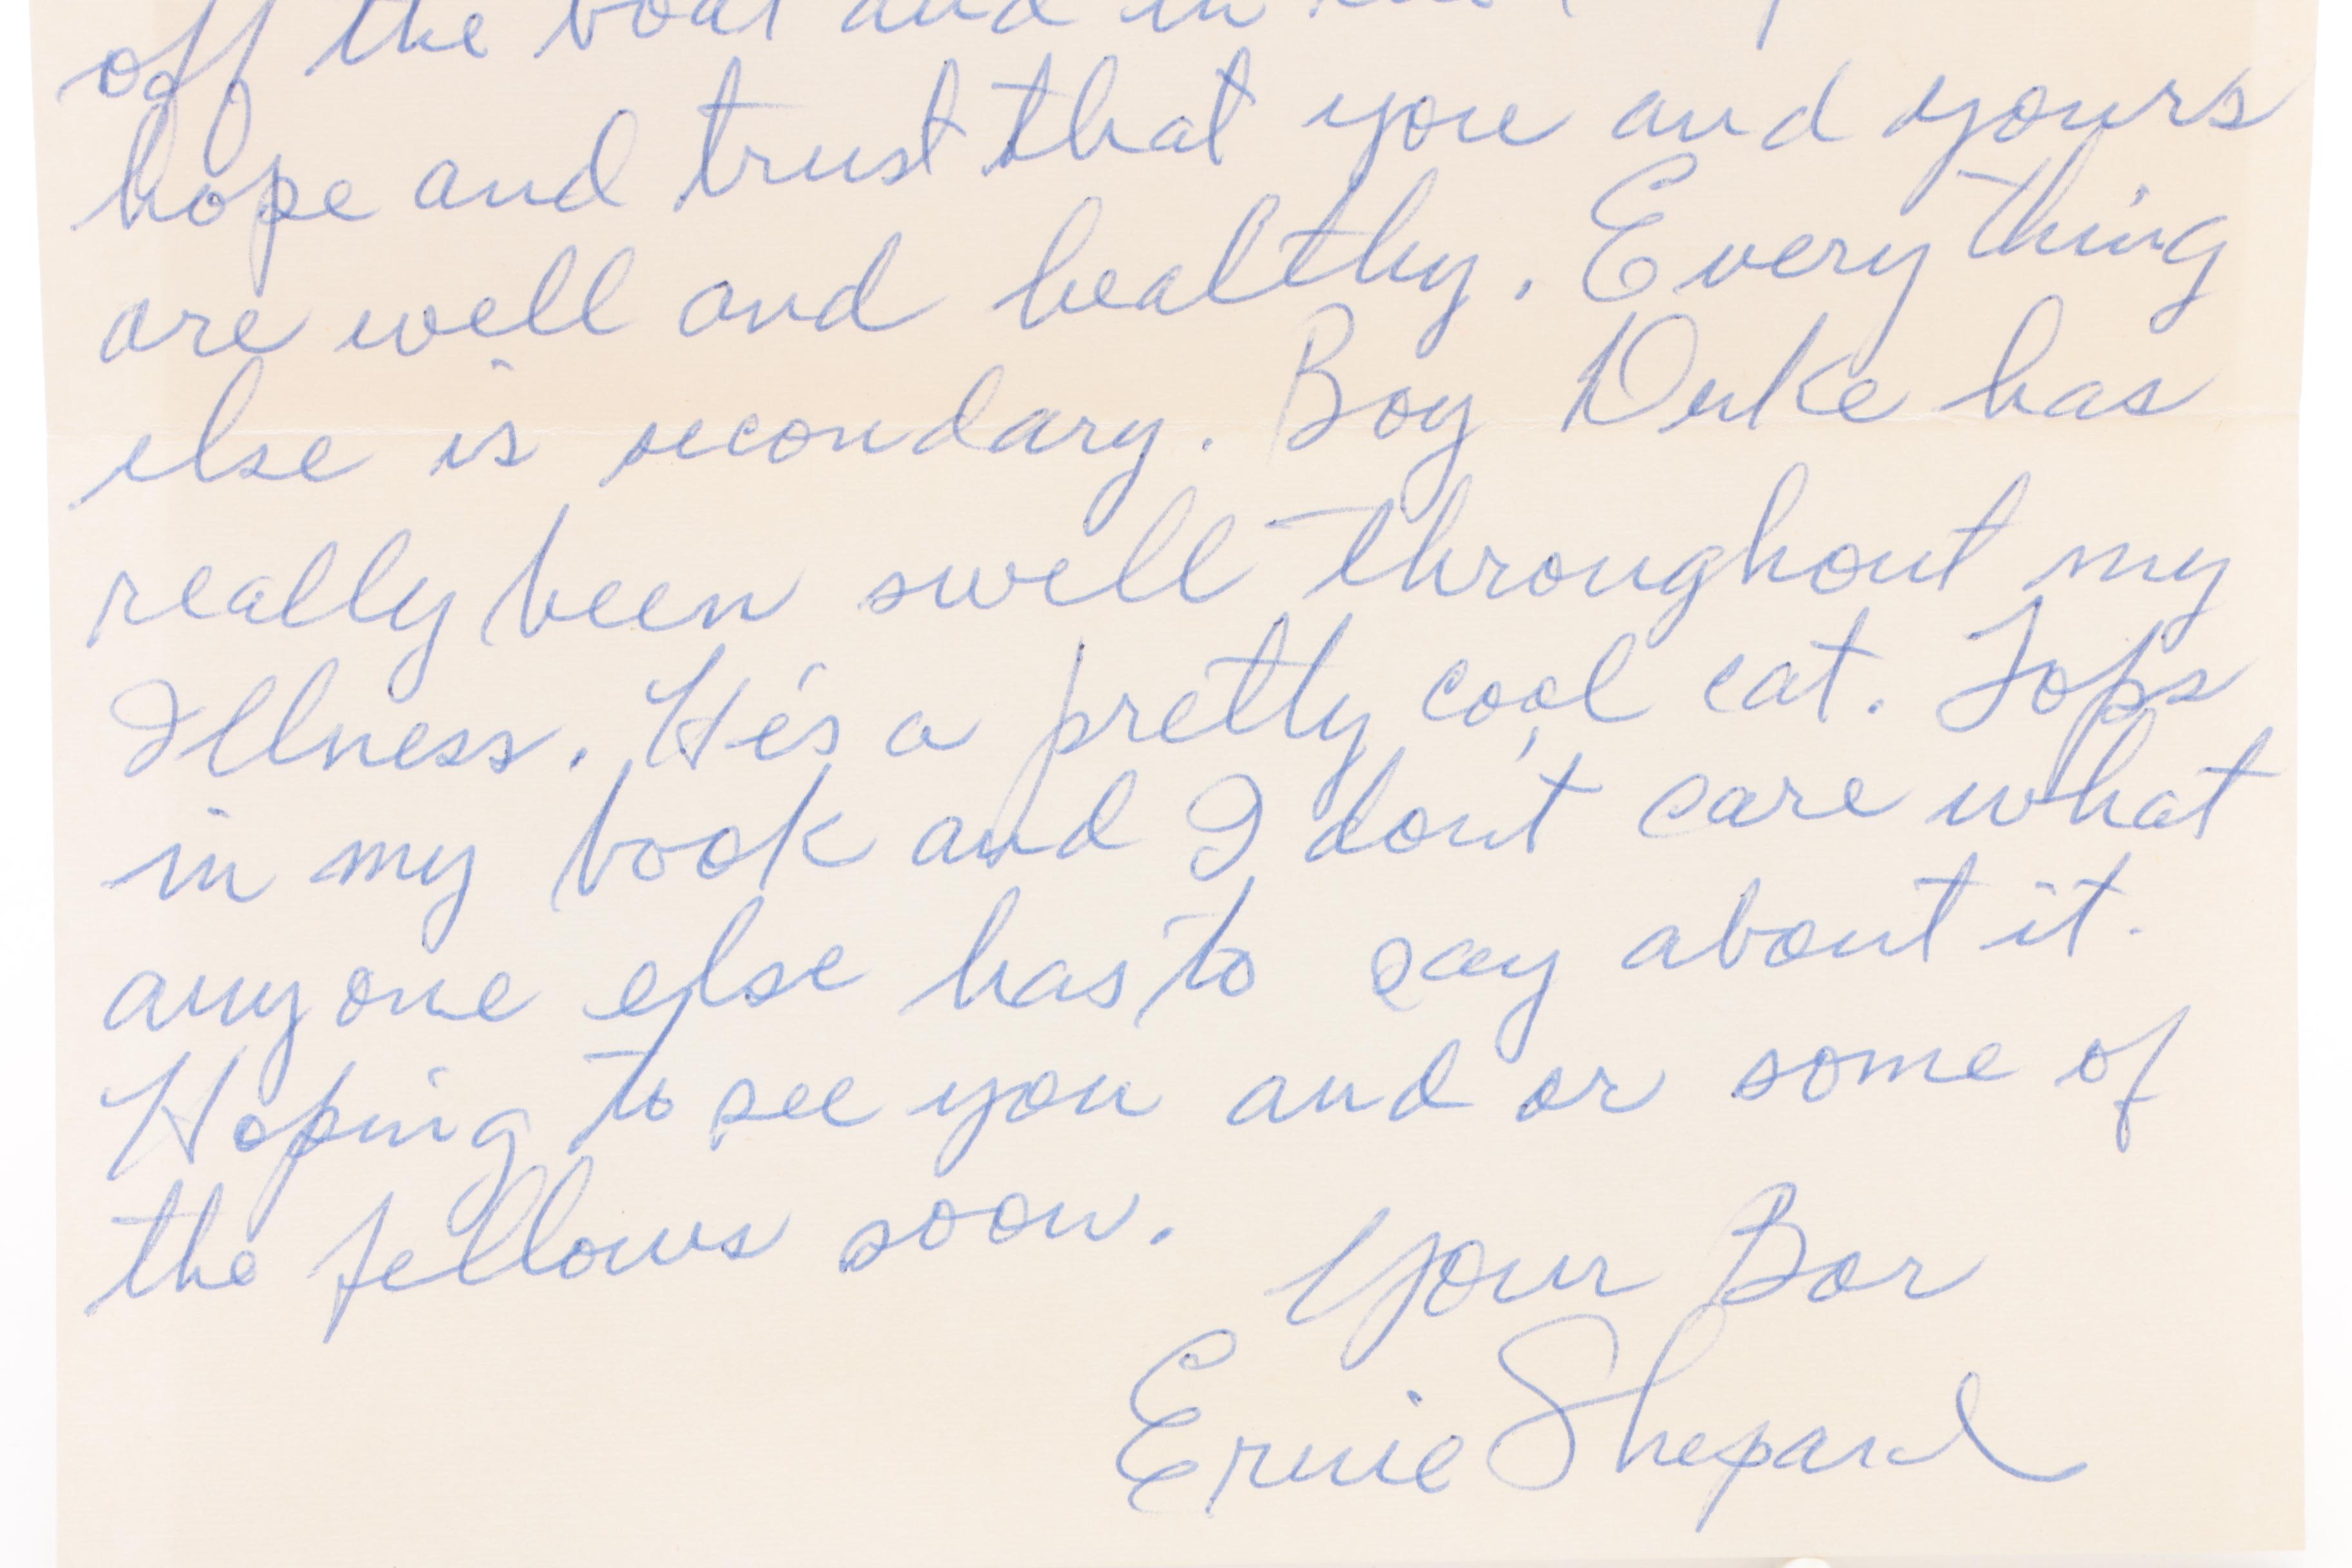 off the boat and in
hope and trust that you and yours
are well and healthy. Every thing
else is secondary. Boy Duke has
really been swell throughout my
Illness. He's a pretty cool cat. Tops
in my book and I don't care what
anyone else has to say about it.
Hoping to see you and or some of
the fellows soon.
Your Bor
Ernie Shepard